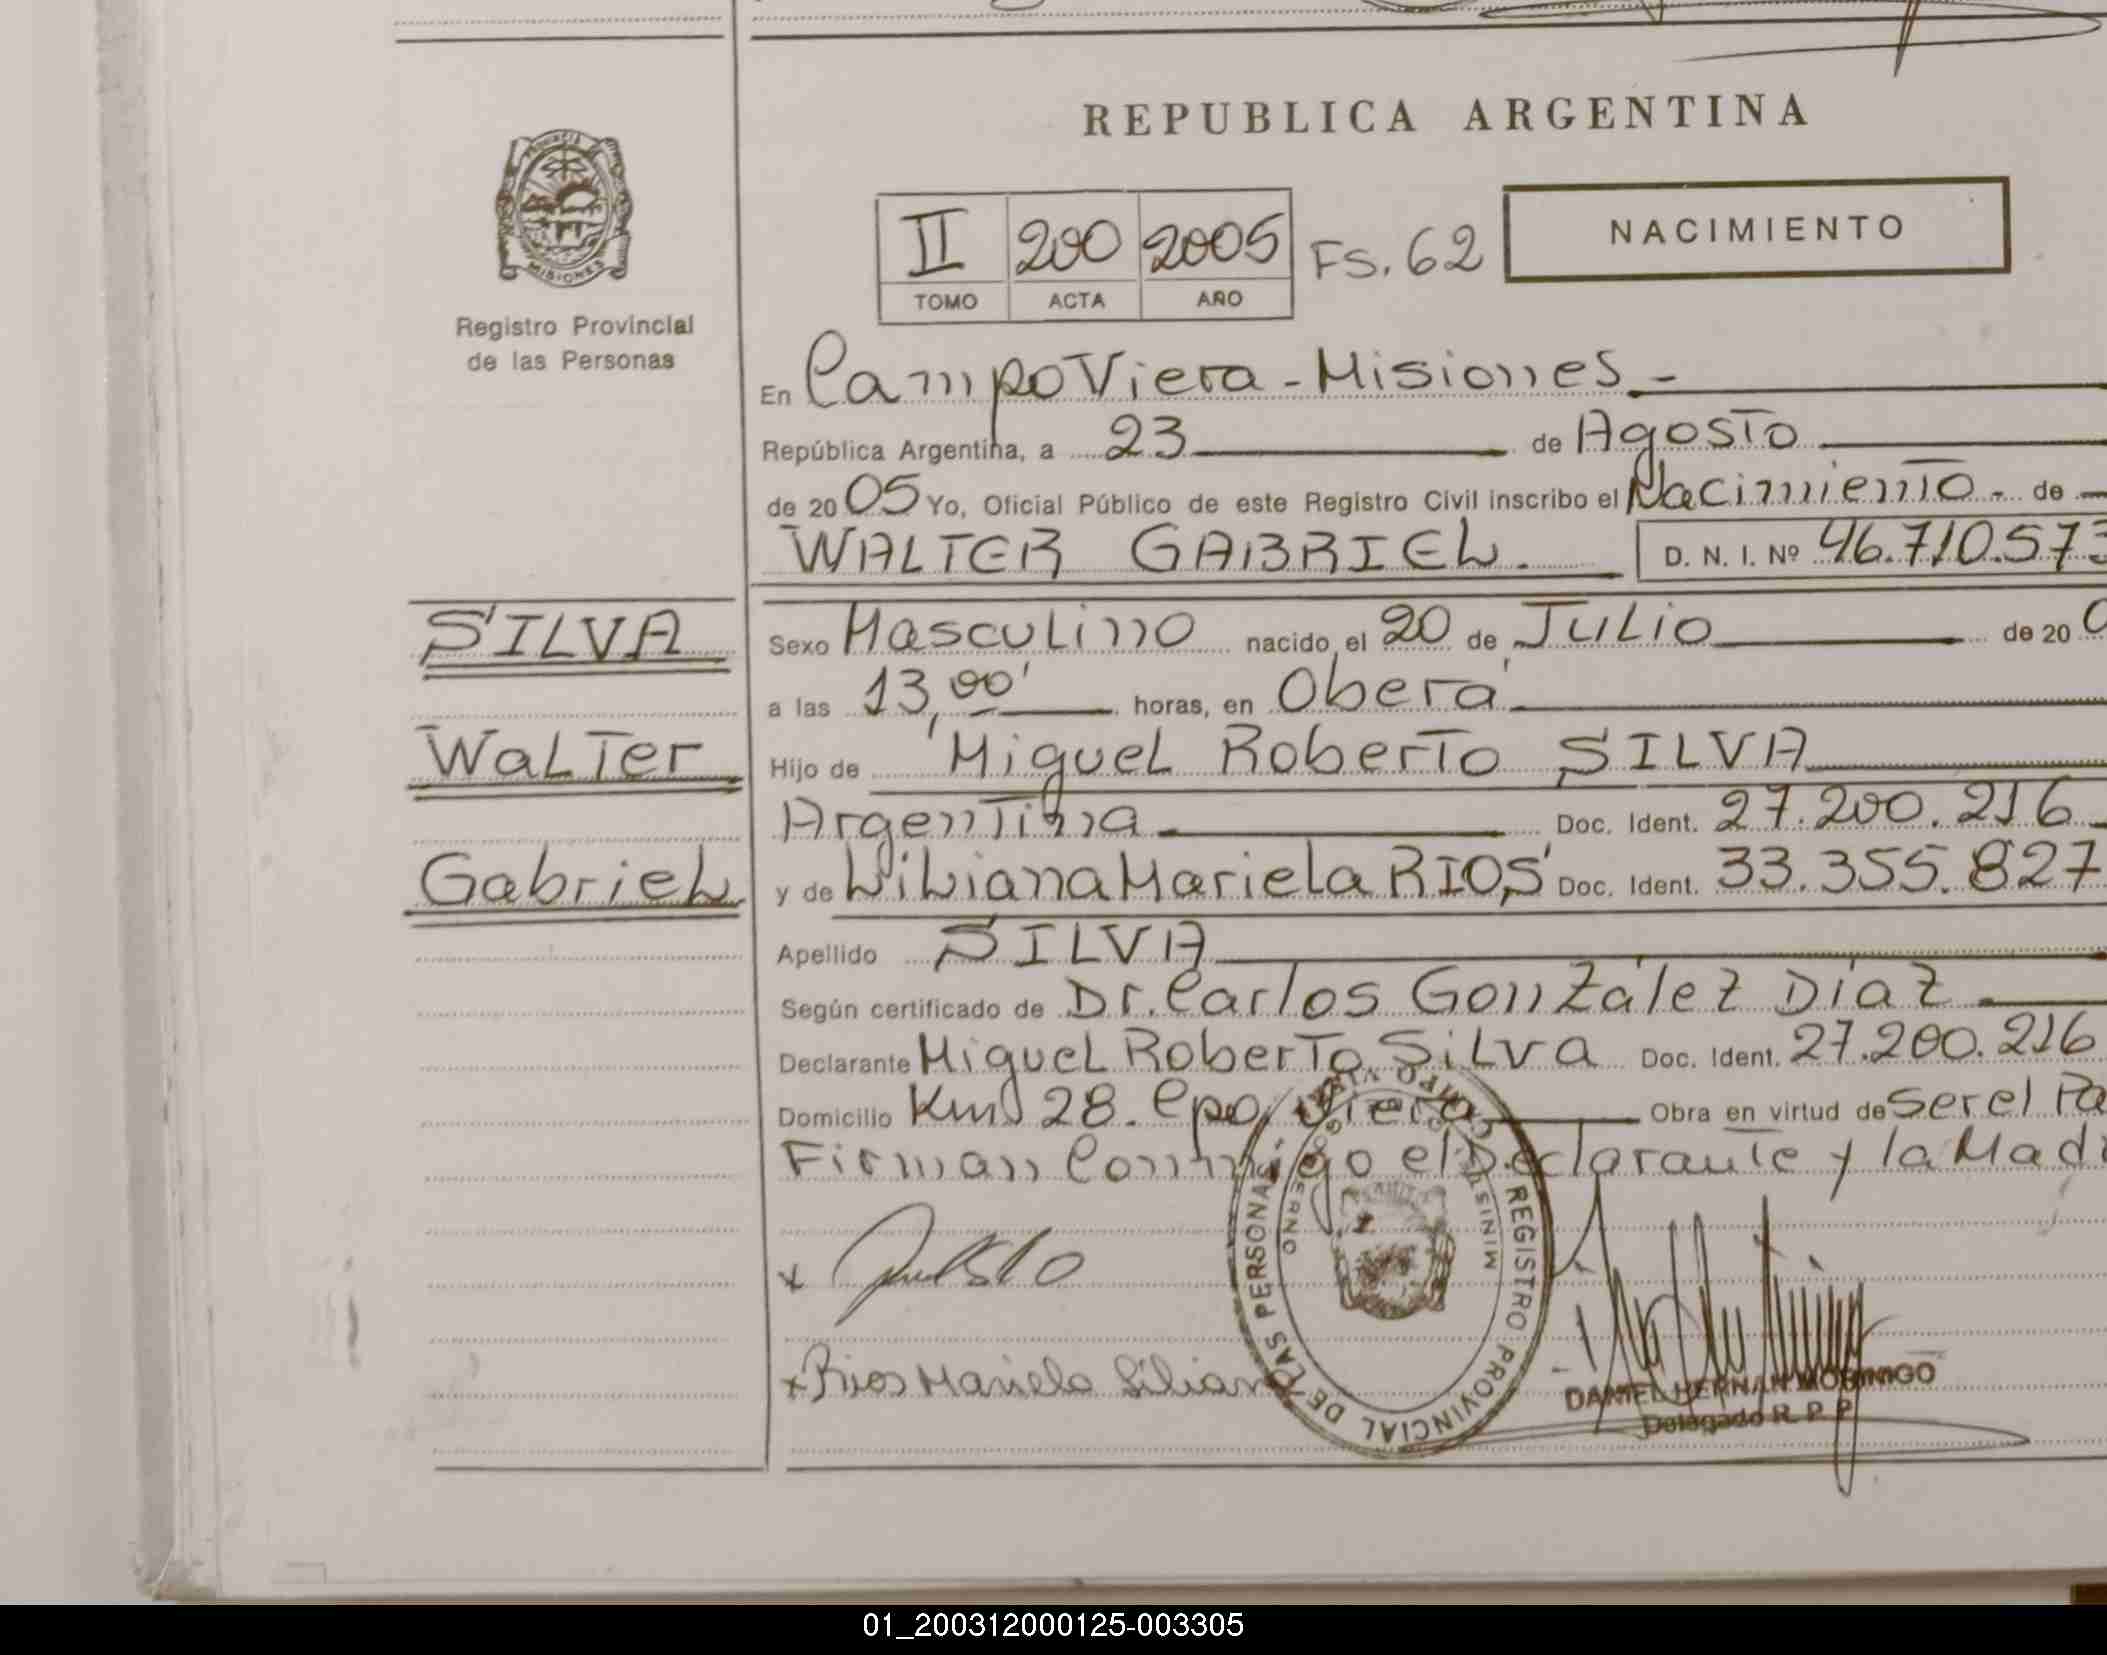 REPUBLICA ARGENTINA
PROVINCIA DE
MISIONES
Registro Provincial
de las Personas
II 200 2005 Fs. 62 NACIMIENTO
TOMO ACTA AÑO
En Campo Viera - Misiones -
República Argentina, a 23 de Agosto
de 20 05 Yo, Oficial Público de este Registro Civil inscribo el Nacimiento - de
WALTER GABRIEL. D. N. I. Nº 46.710.573
SILVA
Walter
Gabriel
Sexo Masculino nacido el 20 de Julio de 20 0
a las 13,00' horas, en Oberá
Hijo de Miguel Roberto SILVA
Argentina Doc. Ident. 27.200.216
y de Liliana Mariela RIOS Doc. Ident. 33.355.827
Apellido SILVA
Según certificado de Dr. Carlos González Díaz
Declarante Miguel Roberto Silva Doc. Ident. 27.200.216
Domicilio Km 28. Cpo. Viera Obra en virtud de Ser el Pa
Firman Conmigo el Declarante y la Mad
x
x Rios Mariela Liliana
REGISTRO PROVINCIAL DE LAS PERSONAS
CAMPO VIERA
DANIEL HERNAN MOBINIGO
Delegado R. P. P.
01_200312000125-003305